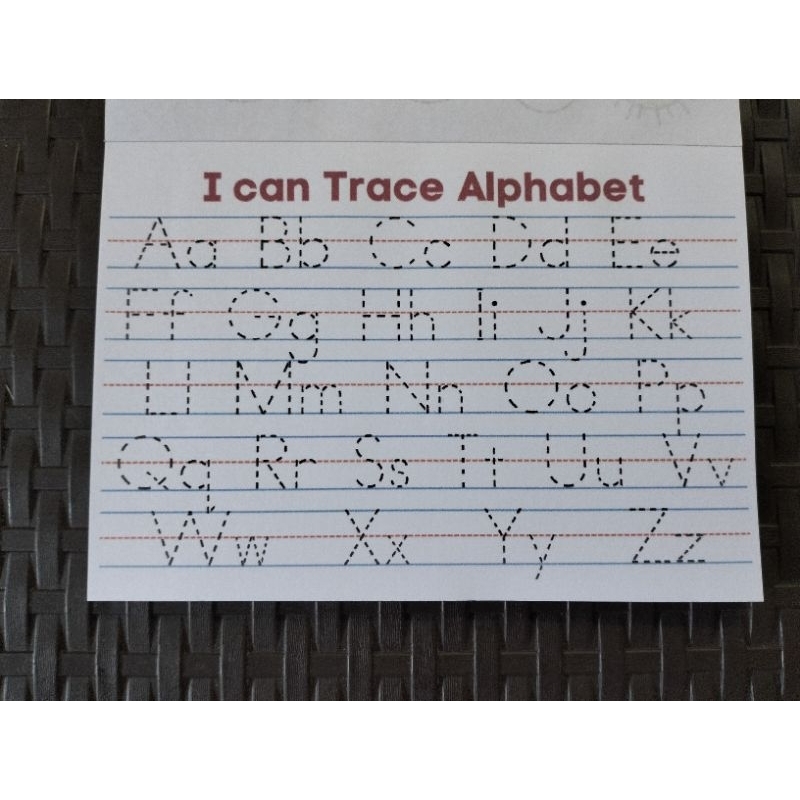 I can Trace Alphabet
Aa Bb Cc Dd Ee
Ff Gg Hh Ii Jj Kk
Ll Mm Nn Oo Pp
Qq Rr Ss Tt Uu Vv
Ww Xx Yy Zz